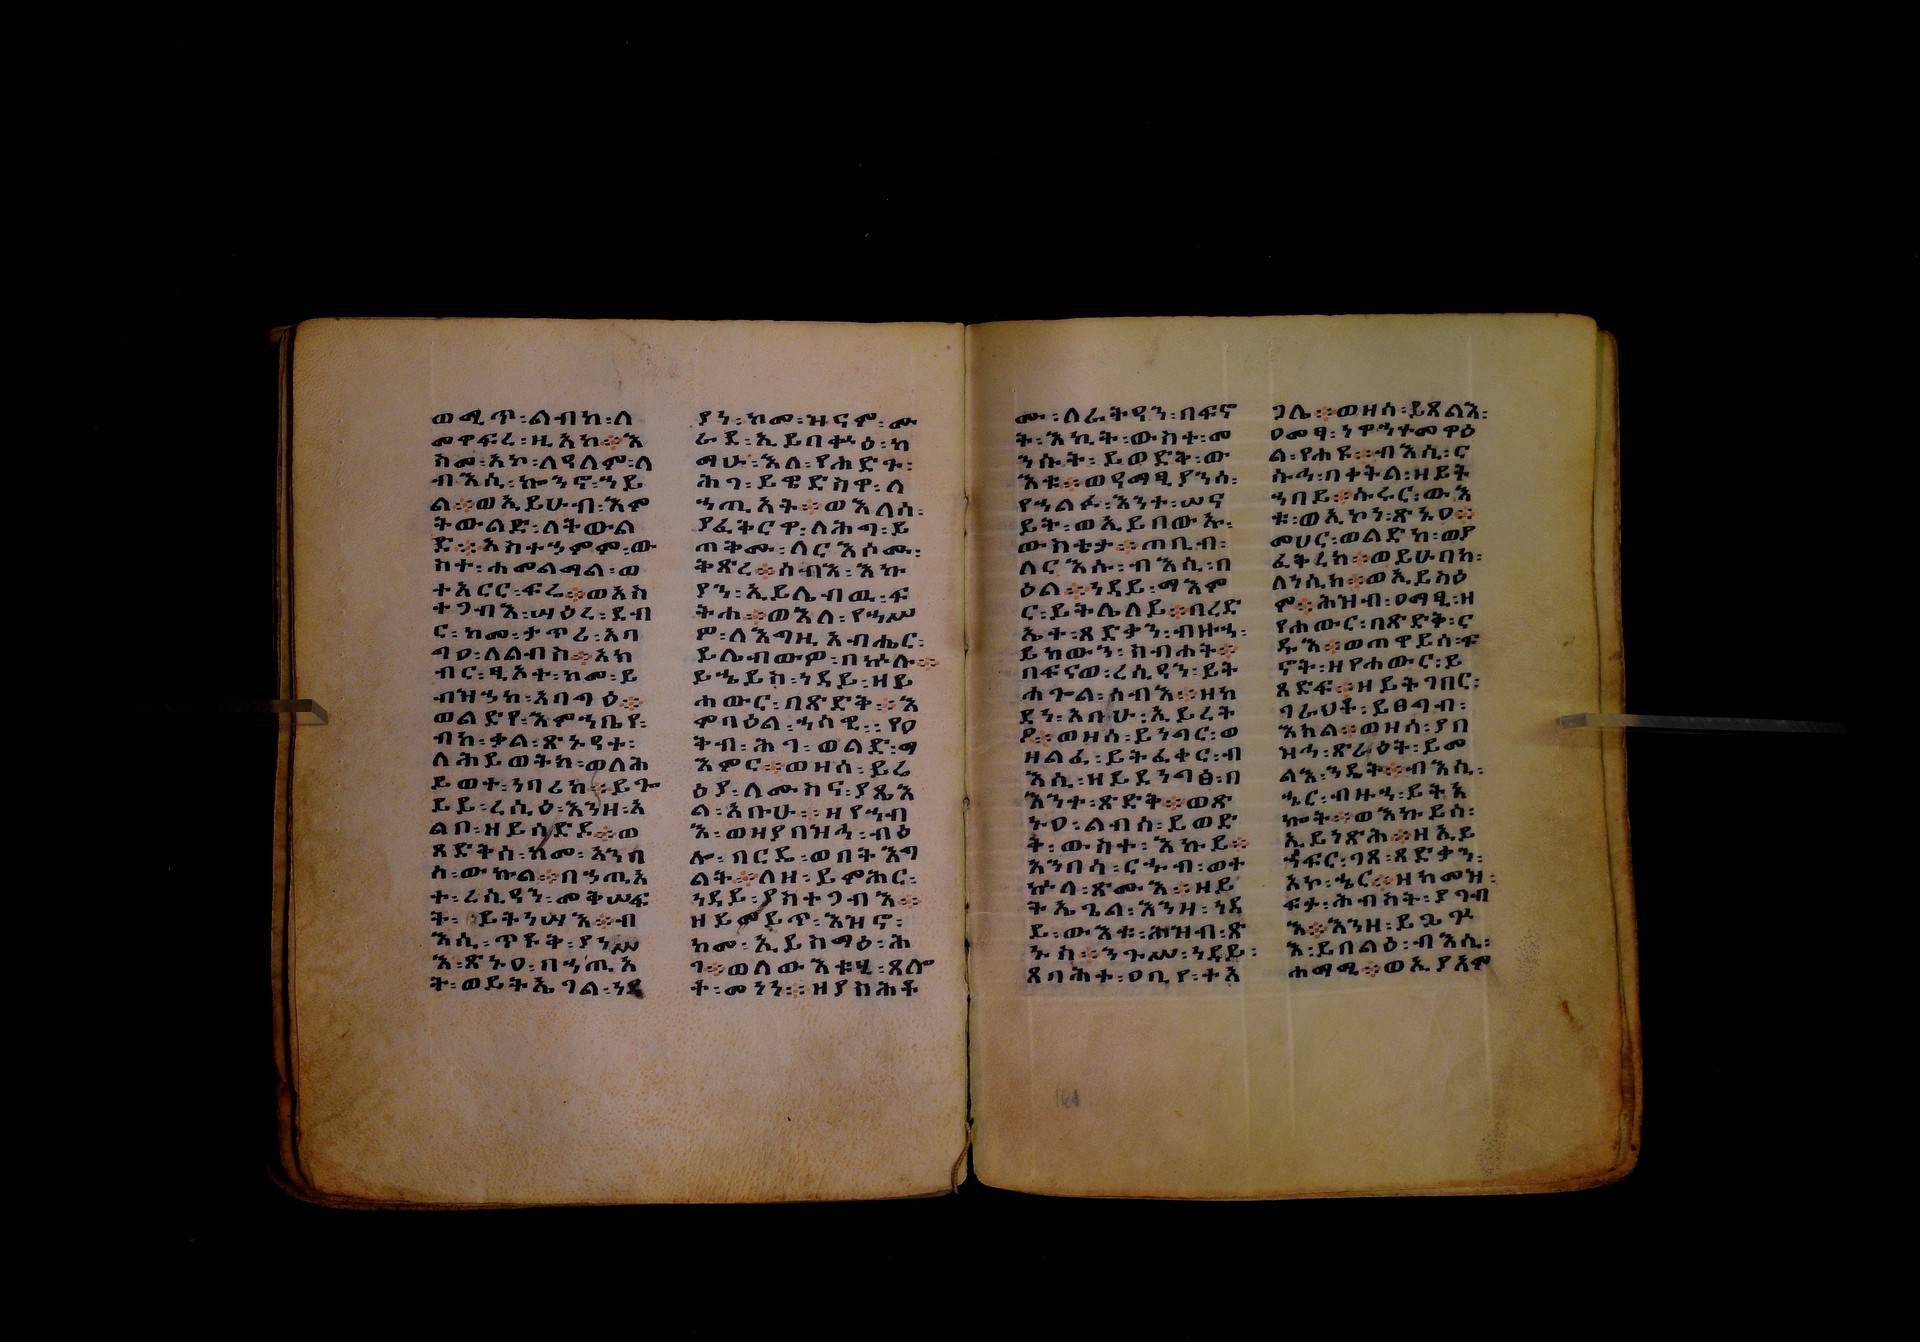 ወሚጥ፡ልብከ፡ለ
መዋፍረ፡ዚአከ፨እ
ስመ፡አኮ፡ለዓለም፡ለ
ብእሲ፡ኵነኖ፡ኀይ
ል፨ወኢይሁብ፡እም
ትውልድ፡ለትውል
ድ፨አስተኀምም፡ው
ስተ፡ሐመልማል፡ወ
ተአርር፡ፍሬ፨ወአስ
ተጋብእ፡ሣዕረ፡ደብ
ር፡ከመ፡ታጥሪ፡አባ
ግዐ፡ለልብስ፨አክ
ብር፡ፂኦተ፡ከመ፡ይ
ብዝኅከ፡አባግዕ፨
ወልድየ፡እምኀቤየ፡
ብከ፡ቃል፡ጽኑዓተ፡
ለሕይወትከ፡ወለሕ
ይወተ፡ነባሪከ፨ይጐ
ይይ፡ረሲዕ፡እንዘ፡አ
ልቦ፡ዘይሰድዶ፨ወ
ጻድቅሰ፡ከመ፡አንበ
ሳ፡ውኩል፨በኀጢአ
ተ፡ረሲዓን፡መቅሠፍ
ት፡ይትነሣእ፨ብ
እሲ፡ጥዩቅ፡ያነሥ
እ፡ጽኑዐ፡በኀጢአ
ት፡ወይትኤገል፡ነዳ
ያነ፡ከመ፡ዝናም፡ሙ
ራደ፡ኢይበቍዕ፡ከ
ማሁ፡እለ፡የሐድጉ፡
ሕገ፡ይዌድስዋ፡ለ
ኀጢአት፨ወእለሰ፡
ያፈቅርዋ፡ለሕግ፡ይ
ጠቅሙ፡ለርእሶሙ፡
ቅጽረ፨ሰብእ፡እኩ
ያን፡ኢይሌብዉ፡ፍ
ትሐ፨ወእለ፡የኀሥ
ሥ፡ለእግዚአብሔር፡
ይሌብውዎ፡በኵሉ፨
ይኄይስ፡ነዳይ፡ዘይ
ሐውር፡በጽድቅ፨እ
ምባዕል፡ኀሳዊ፨የዐ
ቅብ፡ሕገ፡ወልድ፡ማ
እምር፨ወዘሰ፡ይሬ
ዕያ፡ለሙስና፡ያጼእ
ል፡አቡሁ፨ዘየኀብ
እ፡ወዘያበዝኅ፡ብዕ
ሎ፡በርዴ፡ወበትእግ
ልት፨ለዘ፡ይምሕር፡
ነዳይ፡ያስተጋብእ፨
ዘይመይጥ፡እዝኖ፡
ከመ፡ኢይስማዕ፡ሕ
ገ፨ወለውእቱሂ፡ጸሎ
ቶ፡መነነ፨ዘያስሕቶ
ሙ፡ለራትዓን፡በፍኖ
ት፡እኪት፡ውስተ፡መ
ንሱት፡ይወድቅ፡ው
እቱ፨ወዓማፂያንሰ፡
የኀልፉ፡እንተ፡ሠና
ይት፡ወኢይበውኡ፡
ውስቴታ፨ጠቢብ፡
ለርእሱ፡ብእሲ፡በ
ዕል፨ነዳይ፡ማእም
ር፡ይትሌለይ፨በረድ
ኤተ፡ጻድቃን፡ብዙኅ፡
ይከውን፡ስብሐት፨
በፍናወ፡ረሲዓን፡ይት
ሐጐል፡ሰብእ፨ዘከ
ደነ፡አበሁ፡ኢይረት
ዖ፨ወዘሰ፡ይነግር፡ወ
ዘልፈ፡ይትፈቀር፡ብ
እሲ፡ዘይደነግፅ፡በ
እንተ፡ጽድቅ፨ወጽ
ኑዐ፡ልብሰ፡ይወድ
ቅ፡ውስተ፡እኩይ፨
አንበሳ፡ርኁብ፡ወተ
ኵላ፡ጽሙእ፨ዘይ
ትኤጌል፡እንዘ፡ነዳ
ይ፡ውእቱ፡ሕዝብ፡ጽ
ኑስ፨ንጉሥ፡ነዳይ፡
ጸባሕተ፡ዐቢየ፡ተአ
ጋሌ፨ወዘሰ፡ይጸልእ፡
ዐመፃ፡ነዋኀተመዋዕ
ል፡የሐዩ፨ብእሲ፡ር
ሱሓ፡በቀትል፡ዘይት
ኀበይ፨ሱሩር፡ውእ
ቱ፡ወኢኮነ፡ጽኑዐ፨
መሀር፡ወልድከ፡ወያ
ፈቅረከ፨ወይሁበከ፡
ለነሲከ፨ወኢይስዕ
ም፨ሕዝብ፡ዐማፂ፡ዘ
የሐውር፡በጽድቅ፡ር
ዱእ፨ወጠዋይሰ፡ፍ
ኖት፡ዘየሐውር፡ይ
ጸድፍ፨ዘይትገበር፡
ገራህቶ፡ይፀግብ፡
እክል፨ወዘሰ፡ያበ
ዝኅ፡ጽራዕት፡ይመ
ልእ፡ንዴት፨ብእሲ፡
ኄር፡ብዙኅ፡ይትአ
ኰት፨ወእኩይሰ፡
ኢይነጽሕ፨ዘኢይ
ኀፍር፡ገጸ፡ጻድቃን፡
አኮ፡ኄር፨ዘከመዝ፡
ፍታ፡ሕብስት፡ያገብ
እ፨እንዘ፡ይጔጕ
እ፡ይበልዕ፡ብእሲ፡
ሐማሚ፨ወኢያአም